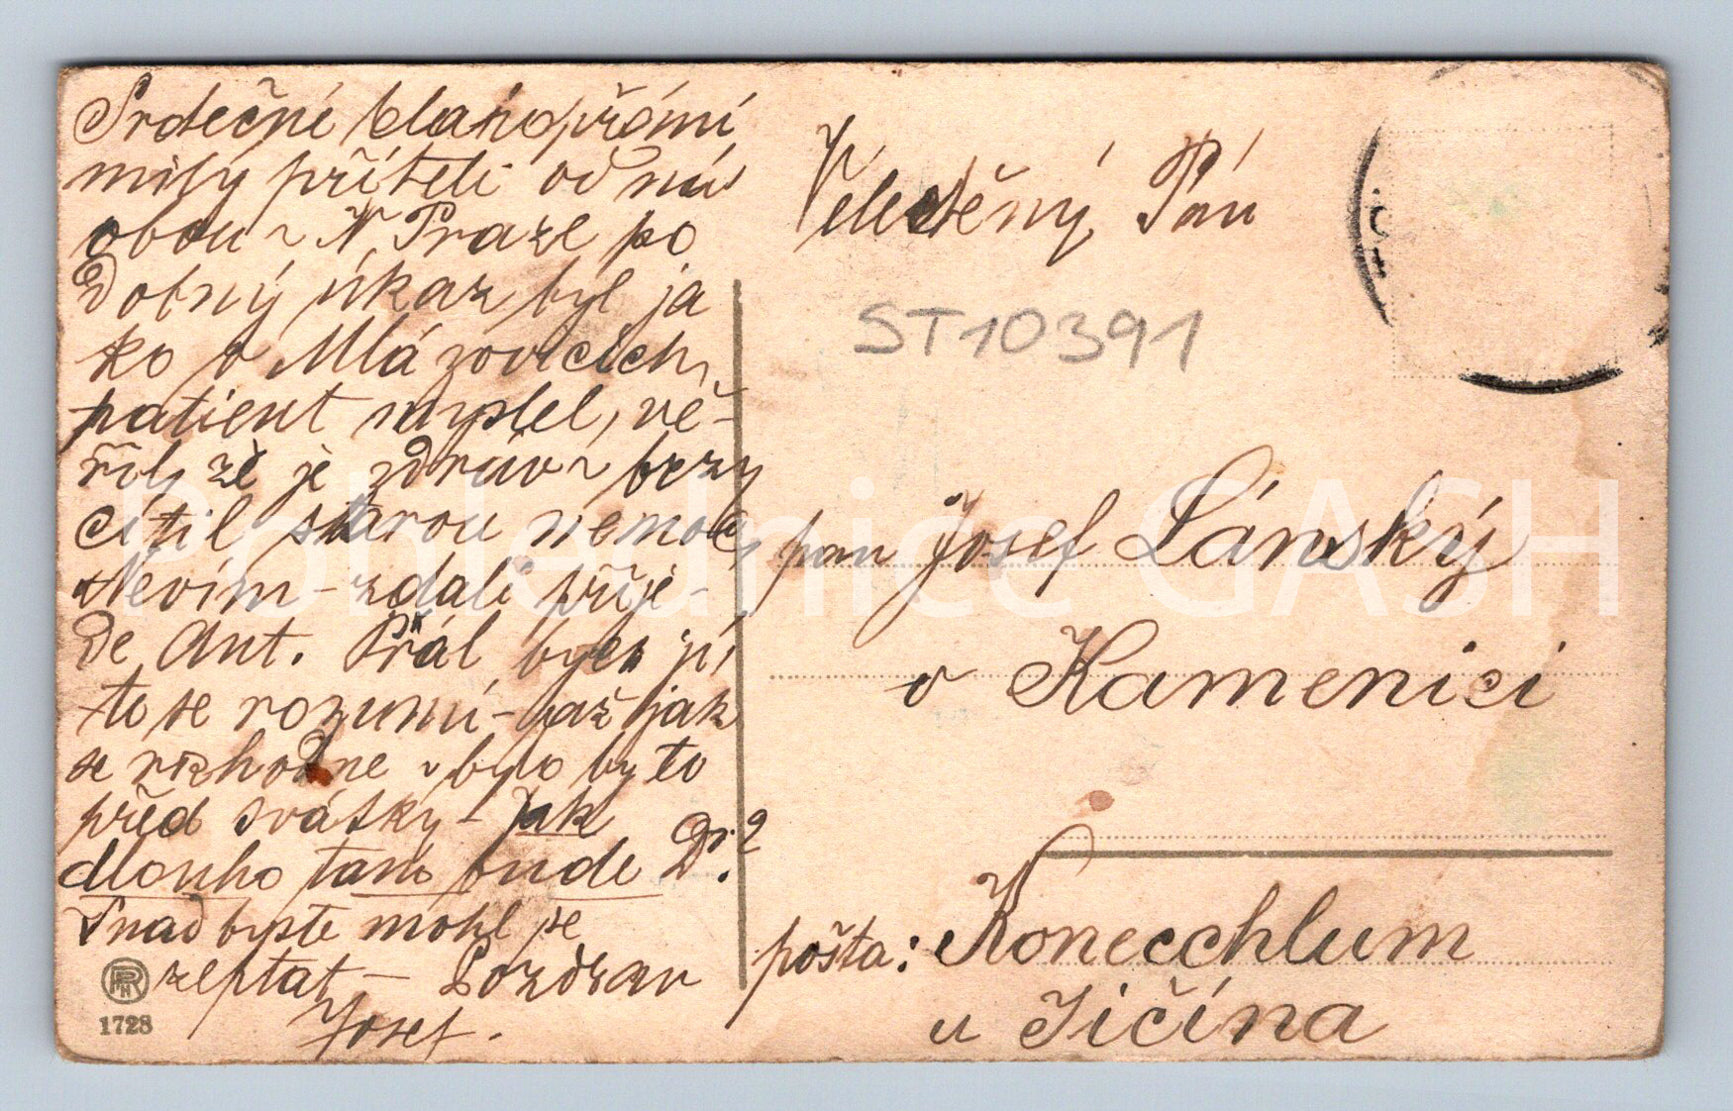 Srdečné blahopřání
milý příteli od nás
obou ~ V Praze po
dobný úkaz byl ja
ko v Mlázovicích,
patient myslel, vě-
řil, že je zdráv ~ brzy
cítil starou nemoc,
Nevím - zdali přije-
de Ant. Přál bych jí
to se rozumí - až jak
se rozhodne ~ bylo by to
před svátky - Jak
dlouho tam bude Dr.?
Snad byste mohl se
zeptat - Pozdrav
Josef.
PRN
1728
Velectěný Pán
ST10391
pan Josef Lánský
v Kamenici
pošta: Konecchlum
u Jičína
Pohlednice GASH